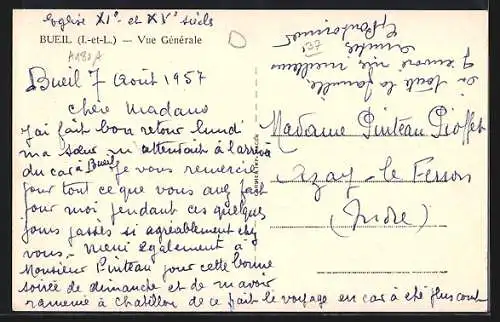 Eglise XIe et XVe siècle
BUEIL (I.-et-L.) — Vue Générale
A180A
Bueil 7 Août 1957
Chère Madame
J'ai fait bon retour lundi
ma sœur m'attendait à l'arrivée
du car à Bueil Je vous remercie
pour tout ce que vous avez fait
pour moi pendant ces quelques
jours passés si agréablement chez
vous. Merci également à
Monsieur Pinteau pour cette bonne
soirée de dimanche et de m'avoir
ramenée à Chatillon de ce fait le voyage en car a été plus court
à toute la famille
J'envoie mes meilleures
amitiés
37
Madame Pinteau Pioffet
Azay-le-Ferron
(Indre)